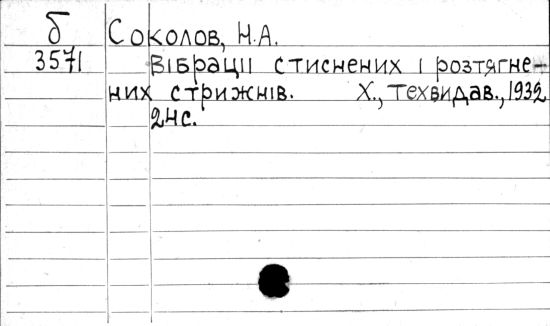 б
3571
Соколов, Н.А.
Вібрації стиснених і розтягне-
них стрижнів. Х., Техвидав., 1932
24с.